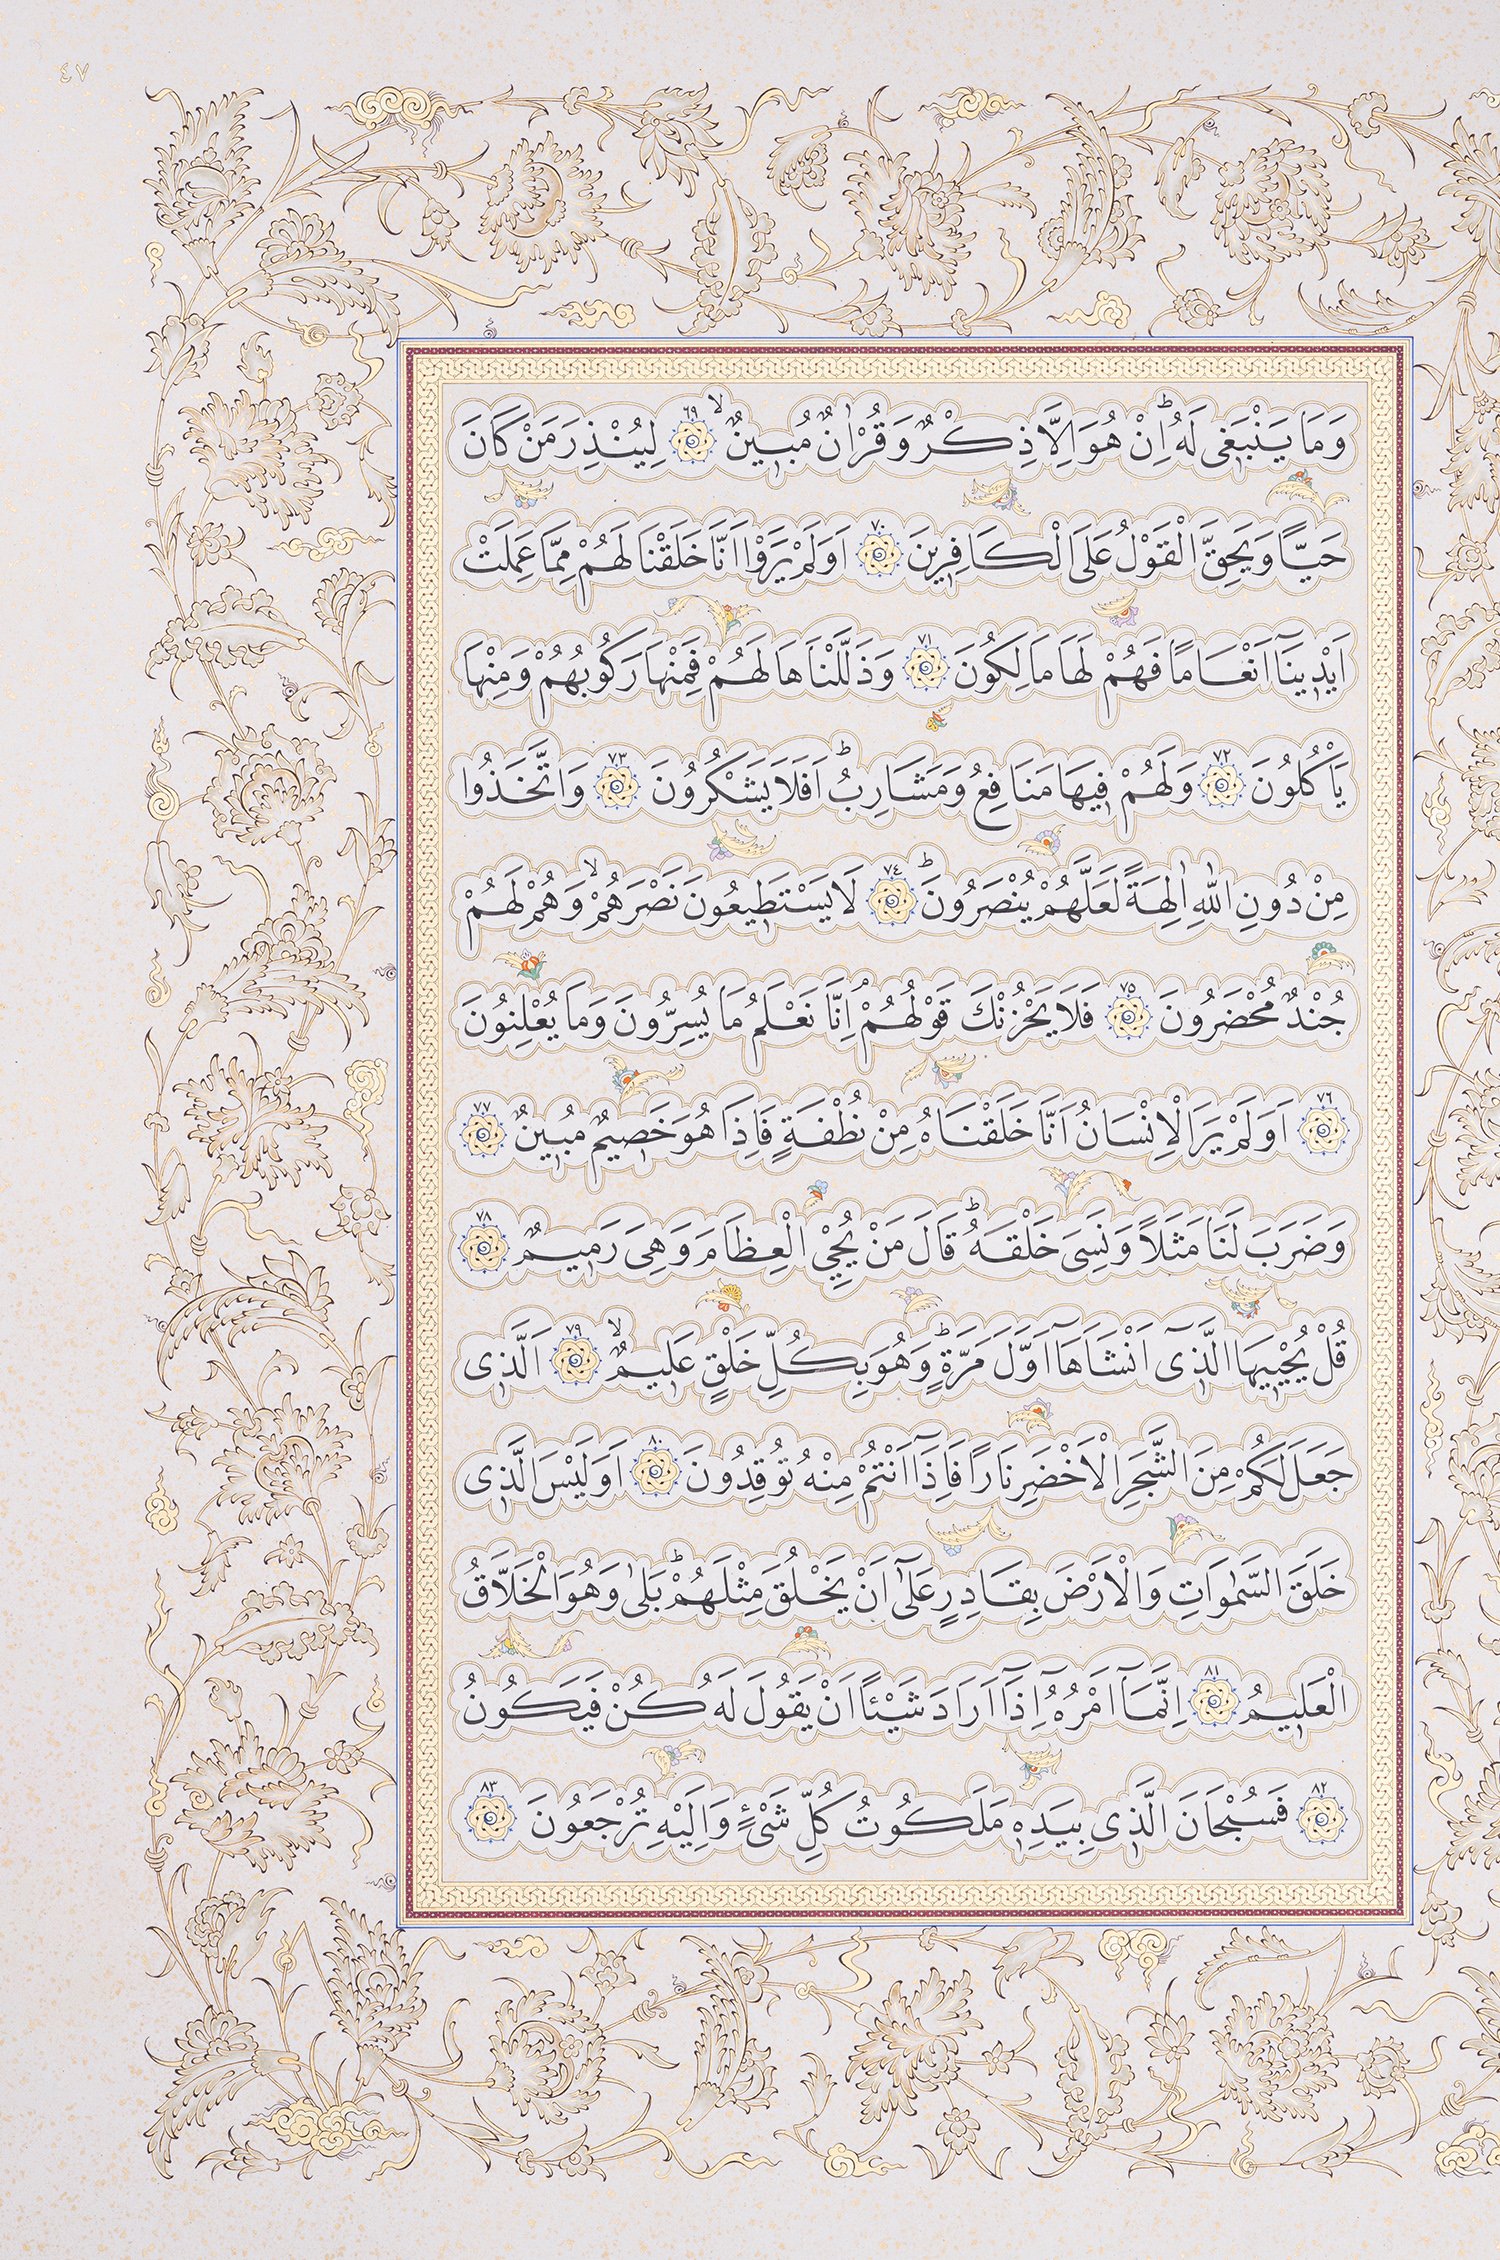 ٤٧
وَمَا يَنْبَغٖى لَهُؕ اِنْ هُوَ اِلَّا ذِكْرٌ وَقُرْاٰنٌ مُبٖينٌۙ ﴿٦٩﴾ لِيُنْذِرَ مَنْ كَانَ
حَيّاً وَيَحِقَّ الْقَوْلُ عَلَى الْكَافِرٖينَ ﴿٧٠﴾ اَوَلَمْ يَرَوْا اَنَّا خَلَقْنَا لَهُمْ مِمَّا عَمِلَتْ
اَيْدٖينَٓا اَنْعَاماً فَهُمْ لَهَا مَالِكُونَ ﴿٧١﴾ وَذَلَّلْنَاهَا لَهُمْ فَمِنْهَا رَكُوبُهُمْ وَمِنْهَا
يَاْكُلُونَ ﴿٧٢﴾ وَلَهُمْ فٖيهَا مَنَافِعُ وَمَشَارِبُؕ اَفَلَا يَشْكُرُونَ ﴿٧٣﴾ وَاتَّخَذُوا
مِنْ دُونِ اللّٰهِ اٰلِهَةً لَعَلَّهُمْ يُنْصَرُونَؕ ﴿٧٤﴾ لَا يَسْتَطٖيعُونَ نَصْرَهُمْۙ وَهُمْ لَهُمْ
جُنْدٌ مُحْضَرُونَ ﴿٧٥﴾ فَلَا يَحْزُنْكَ قَوْلُهُمْۘ اِنَّا نَعْلَمُ مَا يُسِرُّونَ وَمَا يُعْلِنُونَ
﴿٧٦﴾ اَوَلَمْ يَرَ الْاِنْسَانُ اَنَّا خَلَقْنَاهُ مِنْ نُطْفَةٍ فَاِذَا هُوَ خَصٖيمٌ مُبٖينٌ ﴿٧٧﴾
وَضَرَبَ لَنَا مَثَلاً وَنَسِىَ خَلْقَهُؕ قَالَ مَنْ يُحْيِ الْعِظَامَ وَهِىَ رَمٖيمٌ ﴿٧٨﴾
قُلْ يُحْيٖيهَا الَّذٖٓى اَنْشَاَهَٓا اَوَّلَ مَرَّةٍؕ وَهُوَ بِكُلِّ خَلْقٍ عَلٖيمٌۙ ﴿٧٩﴾ اَلَّذٖى
جَعَلَ لَكُمْ مِنَ الشَّجَرِ الْاَخْضَرِ نَاراً فَاِذَٓا اَنْتُمْ مِنْهُ تُوقِدُونَ ﴿٨٠﴾ اَوَلَيْسَ الَّذٖى
خَلَقَ السَّمٰوَاتِ وَالْاَرْضَ بِقَادِرٍ عَلٰٓى اَنْ يَخْلُقَ مِثْلَهُمْؕ بَلٰى وَهُوَ الْخَلَّاقُ
الْعَلٖيمُ ﴿٨١﴾ اِنَّمَٓا اَمْرُهُٓ اِذَٓا اَرَادَ شَيْئاً اَنْ يَقُولَ لَهُ كُنْ فَيَكُونُ
﴿٨٢﴾ فَسُبْحَانَ الَّذٖى بِيَدِهٖ مَلَكُوتُ كُلِّ شَىْءٍ وَاِلَيْهِ تُرْجَعُونَ ﴿٨٣﴾